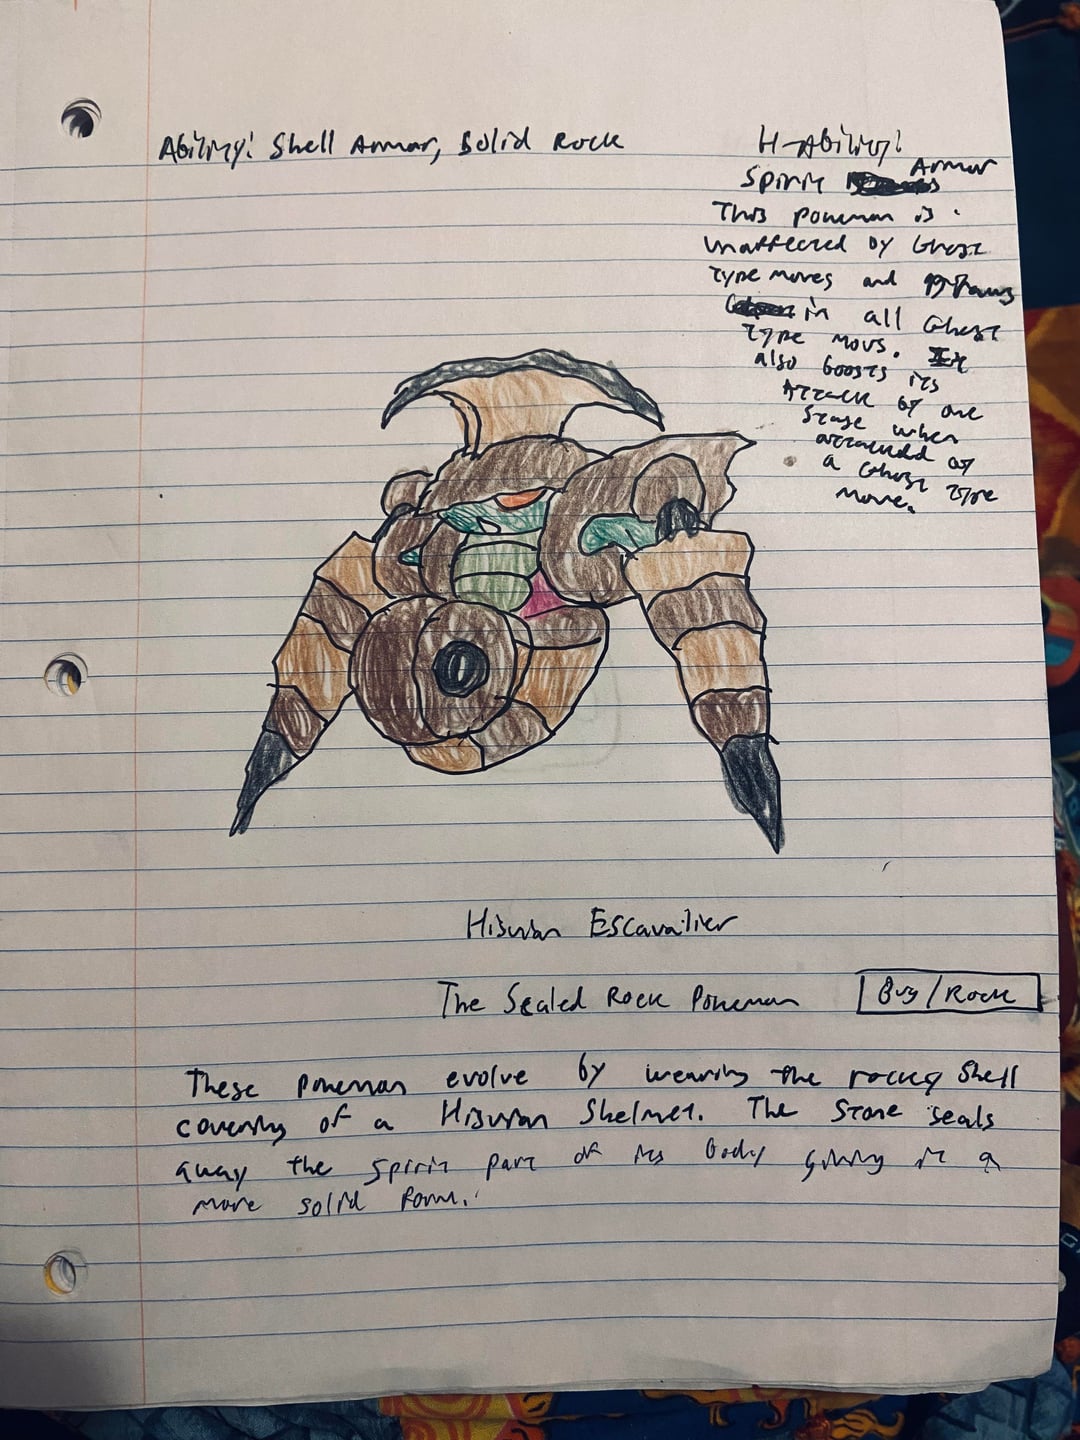 Ability: Shell Armor, Solid Rock
H-Ability:
Spirit Armor
This pokemon is
unaffected by Ghost
type moves and draws
in all Ghost
type movs. It
also boosts its
Attack by one
stage when
attacked by
a Ghost type
move.
Hisuian Escavalier
The Sealed Rock Pokemon
Bug/Rock
These pokemon evolve by wearing the rocky shell
covering of a Hisuian Shelmet. The stone seals
away the spirit part of its body giving it a
more solid form.